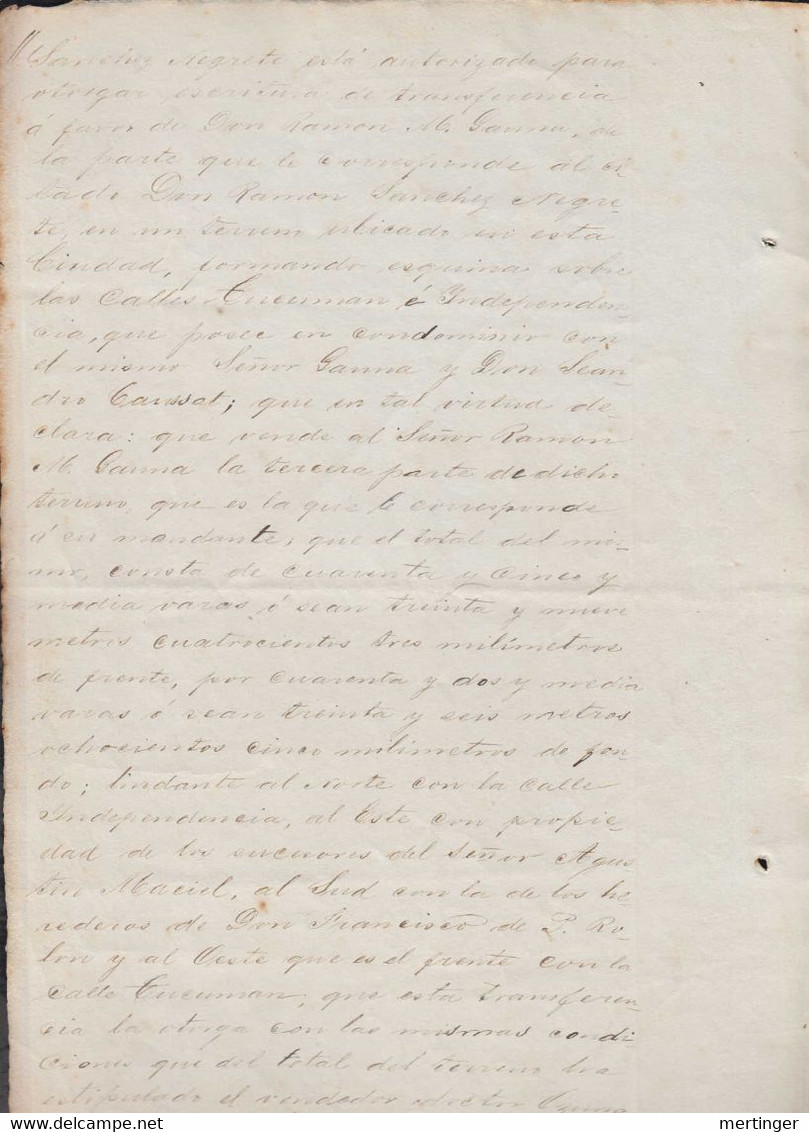 Sanchez Negrete está autorizado para
otorgar escritura de transferencia
á favor de Don Ramon M. Gauna, de
la parte que le corresponde al ci-
tado Don Ramon Sanchez Negre-
te, en un terreno ubicado en esta
Ciudad, formando esquina sobre
las Calles Tucuman é Independen-
cia, que posee en condominio con
el mismo Señor Gauna y Don Lean-
dro Caussat; que en tal virtud de-
clara: que vende al Señor Ramon
M. Gauna la tercera parte de dicho
terreno, que es la que le corresponde
á su mandante, que el total del mis-
mo, consta de cuarenta y cinco y
media varas ó sean treinta y nueve
metros cuatrocientos tres milímetros
de frente, por cuarenta y dos y media
varas ó sean treinta y seis metros
ochocientos cinco milimetros de fon-
do; lindante al Norte con la calle
Independencia, al Este con propie-
dad de los sucesores del Señor Agus
tin Maciel, al Sud con la de los he-
rederos de Don Francisco de P. Ro-
lon y al Oeste que es el frente con la
calle Tucuman, que esta transferen-
cia la otorga con las mismas condi-
ciones que del total del terreno ha
estipulado el vendedor doctor
mertinger